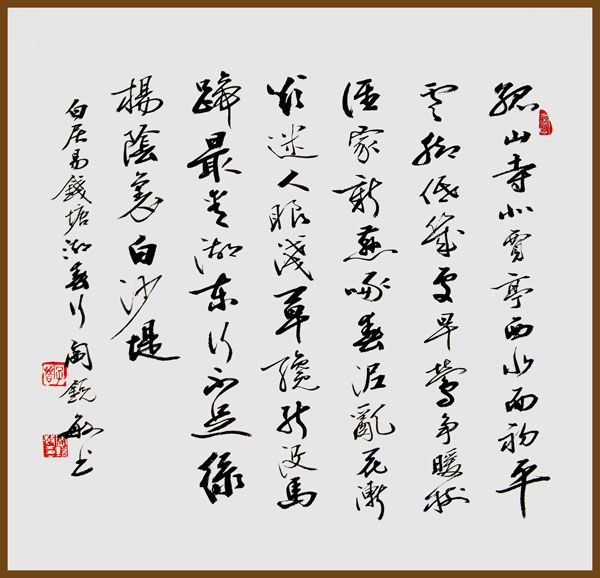 孤山寺北賈亭西水面初平
雲脚低幾處早鶯爭暖樹
誰家新燕啄春泥亂花漸
欲迷人眼淺草纔能沒馬
蹄最愛湖東行不足綠
楊蔭裏白沙堤
白居易錢塘湖春行 銳敏书